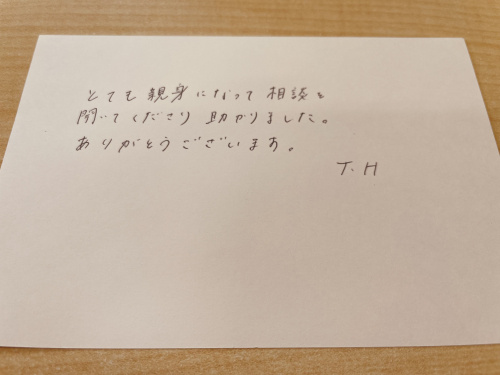 とても親身になって相談を
聞いてくださり助かりました。
ありがとうございます。
T.H